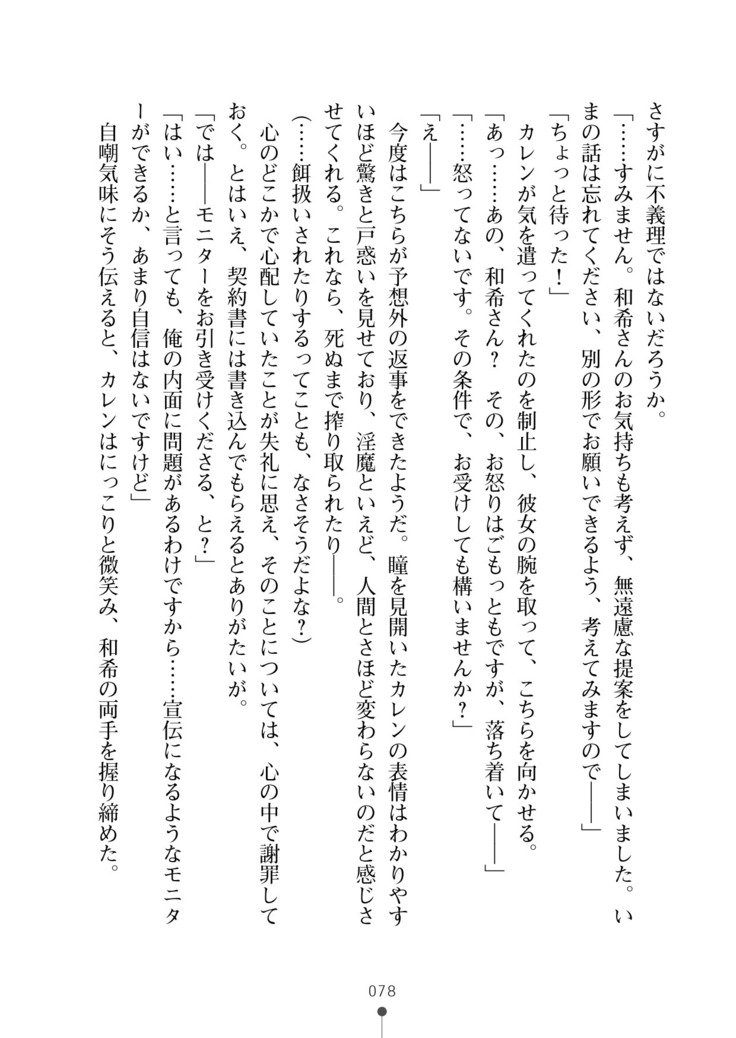 さすがに不義理ではないだろうか。
「……すみません。和希さんのお気持ちも考えず、無遠慮な提案をしてしまいました。い
まの話は忘れてください、別の形でお願いできるよう、考えてみますので――」
「ちょっと待った！」
カレンが気を遣ってくれたのを制止し、彼女の腕を取って、こちらを向かせる。
「あっ……あの、和希さん？　その、お怒りはごもっともですが、落ち着いて――」
「……怒ってないです。その条件で、お受けしても構いませんか？」
「え――」
今度はこちらが予想外の返事をできたようだ。瞳を見開いたカレンの表情はわかりやす
いほど驚きと戸惑いを見せており、淫魔といえど、人間とさほど変わらないのだと感じさ
せてくれる。これなら、死ぬまで搾り取られたり――。
（……餌扱いされたりするってことも、なさそうだよな？）
心のどこかで心配していたことが失礼に思え、そのことについては、心の中で謝罪して
おく。とはいえ、契約書には書き込んでもらえるとありがたいが。
「では――モニターをお引き受けくださる、と？」
「はい……と言っても、俺の内面に問題があるわけですから……宣伝になるようなモニタ
ーができるか、あまり自信はないですけど」
自嘲気味にそう伝えると、カレンはにっこりと微笑み、和希の両手を握り締めた。
078